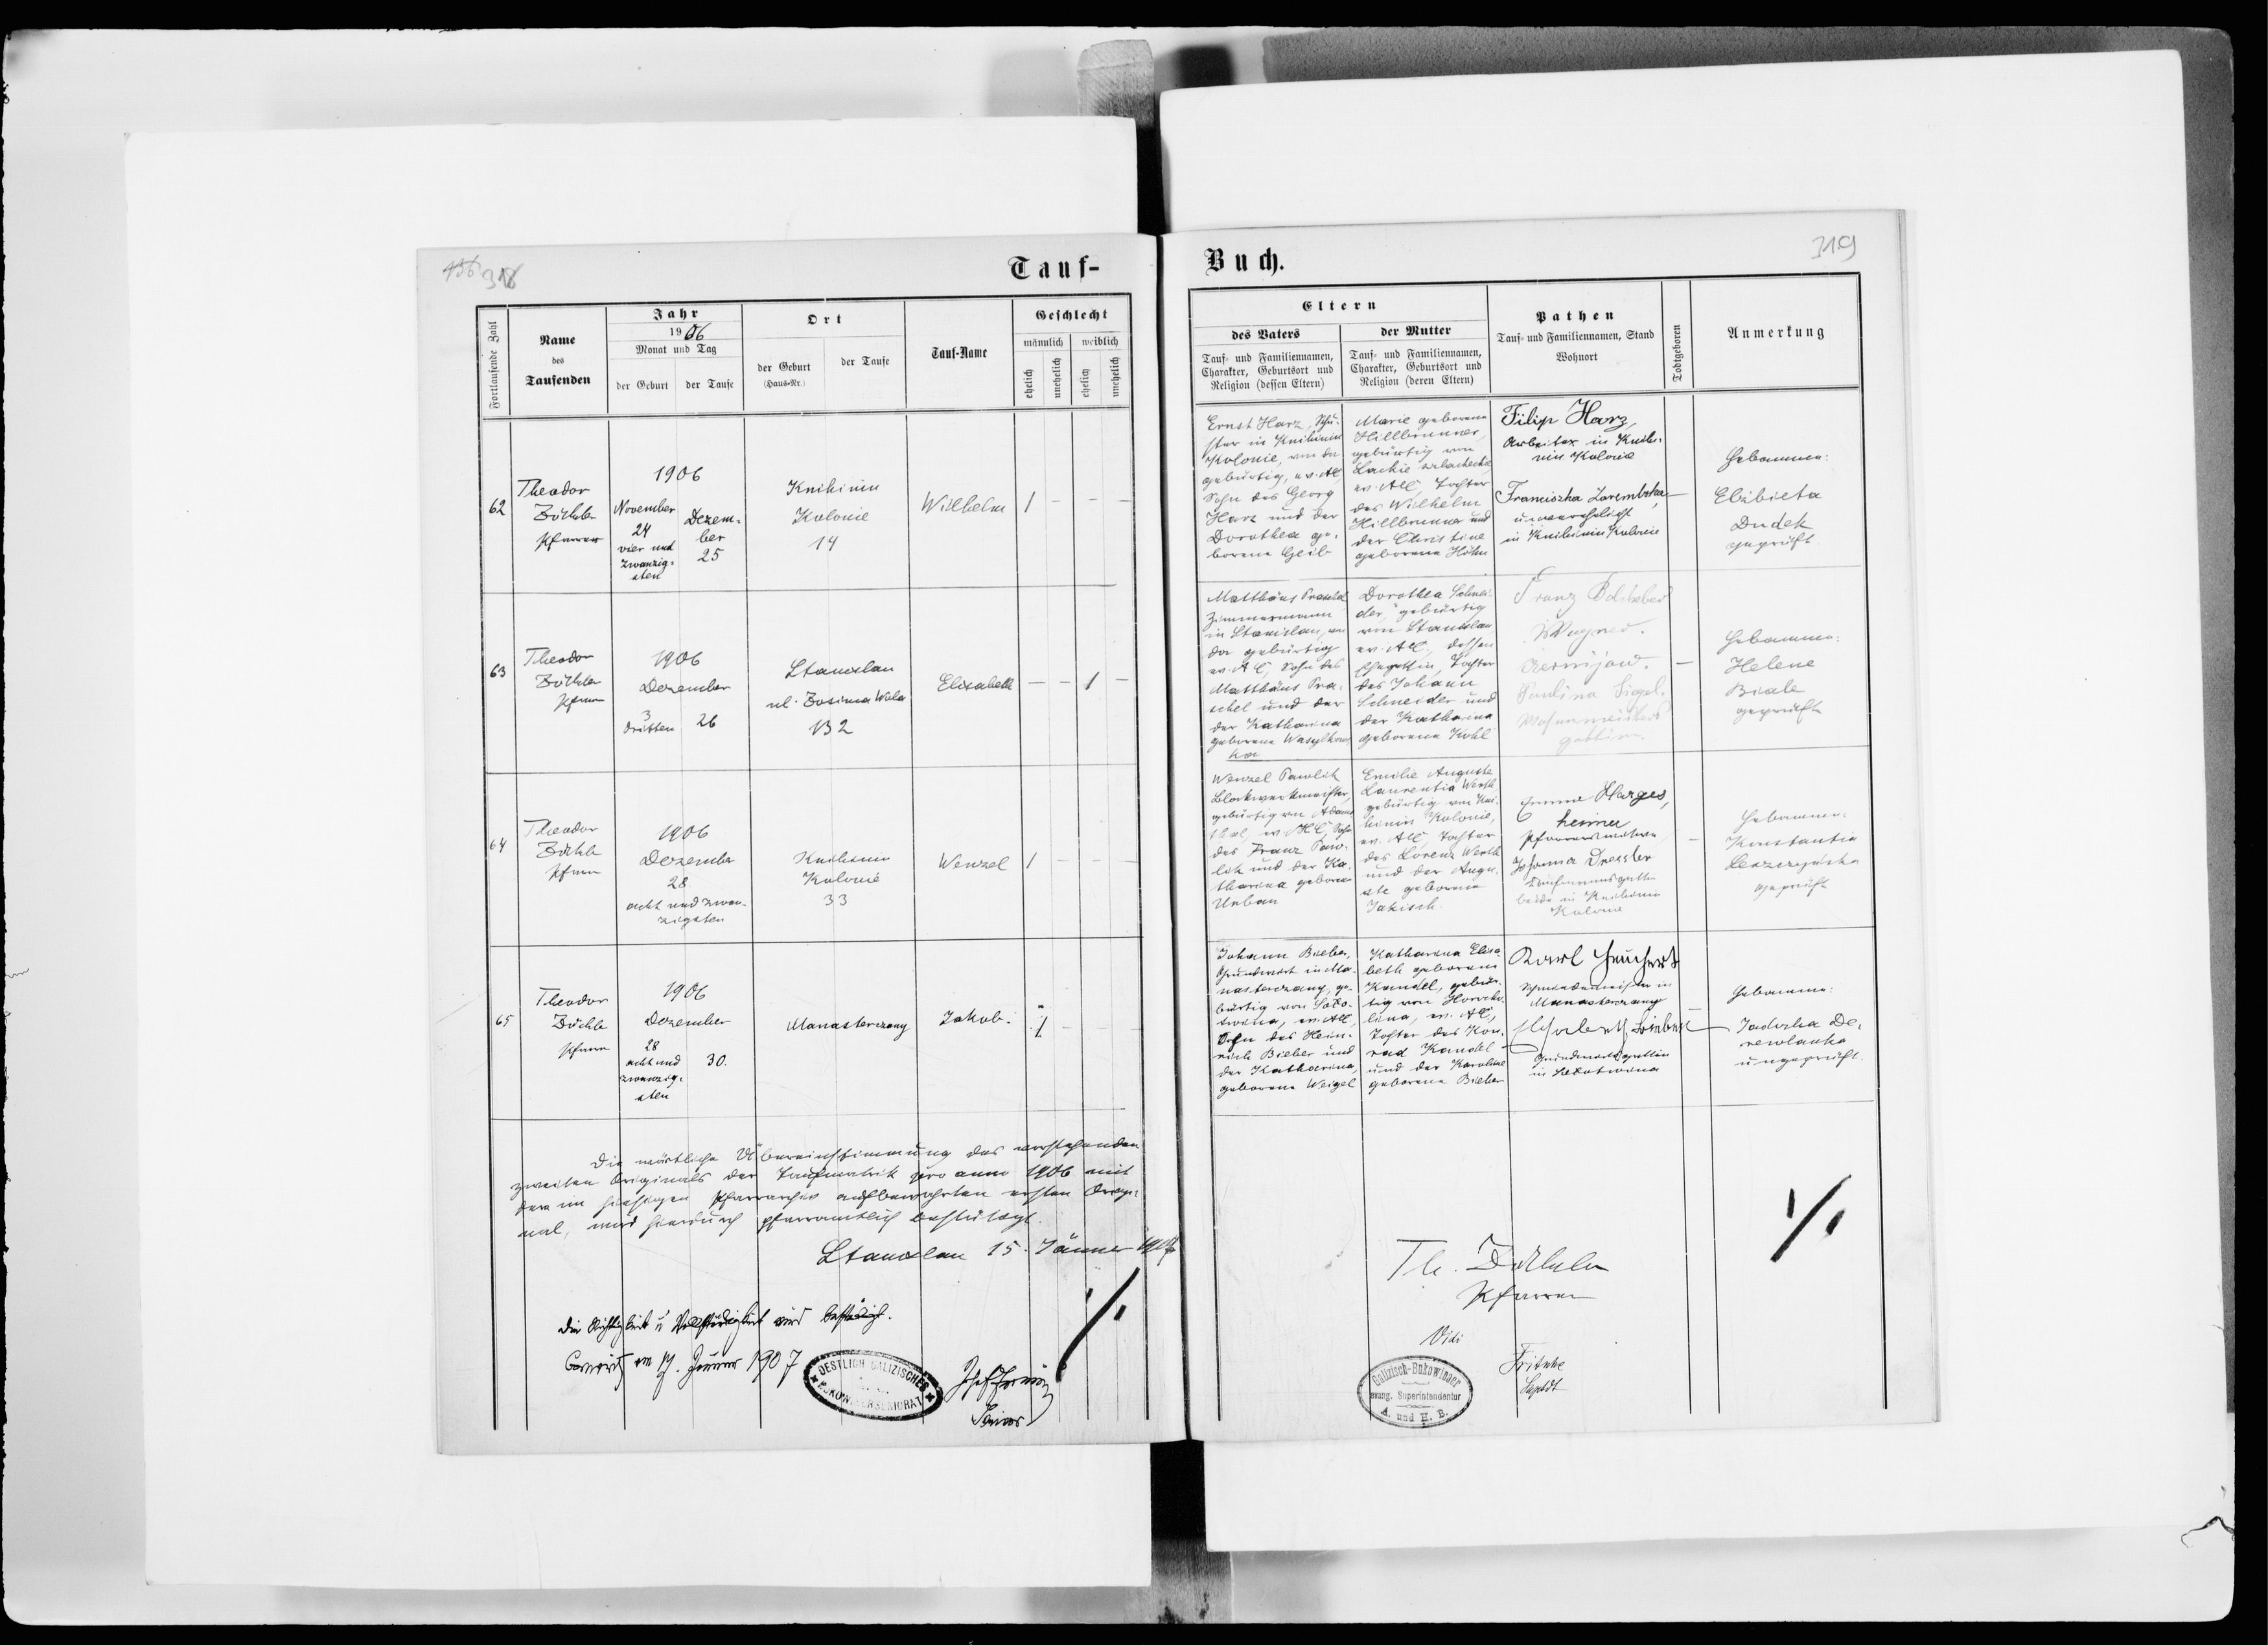 318
Tauf-
Fortlaufende Zahl
Name
des
Taufenden
Jahr
1906
Monat und Tag
der Geburt
der Taufe
Ort
der Geburt
(Haus-Nr.)
der Taufe
Tauf-Name
Geschlecht
männlich
weiblich
ehelich
unehelich
ehelich
unehelich
62
Theodor
Zöckler
Pfarrer
1906
November
24
vier und
zwanzig-
sten
Dezem-
ber
25
Knihinin
Kolonie
14
Wilhelm
1 - - -
63
Theodor
Zöckler
Pfarrer
1906
Dezember
3
dritten
26
Stanislau
ul. Zosina Wola
132
Elisabeth
- - 1 -
64
Theodor
Zöckler
Pfarrer
1906
Dezember
28
acht und zwan-
zigsten
Knihinin
Kolonie
33
Wenzel
1 - - -
65
Theodor
Zöckler
Pfarrer
1906
Dezember
28
acht und
zwanzig-
sten
30.
Manasterczany
Jakob.
1 - - -
Die wörtliche Übereinstimmung des vorstehenden
zweiten Originals der Taufmatrik pro anno 1906 mit
dem im hiesigen Pfarrarchiv aufbewahrten ersten Origi-
nal, wird hierdurch pfarramtlich bestätigt.
Stanislau 15. Jänner 1907
Die Richtigkeit u Vollständigkeit wird bestätigt.
am 17. Jänner 1907
OESTLICH GALIZISCHES
Senior
319
Buch.
Eltern
des Vaters
Tauf- und Familiennamen,
Charakter, Geburtsort und
Religion (dessen Eltern)
der Mutter
Tauf- und Familiennamen,
Charakter, Geburtsort und
Religion (deren Eltern)
Pathen
Tauf- und Familiennamen, Stand
Wohnort
Todtgeboren
Anmerkung
Ernst Harz, Schu-
ster in Knihinin
Kolonie, von da
gebürtig, ev. AC,
Sohn des Georg
Harz und der
Dorothea ge-
borene Geib
Marie geborene
Hillbrunner,
gebürtig von
Lackie szlacheckie,
ev. AC, Tochter
des Wilhelm
Hillbrunner und
der Christine
geborene Höhn
Filip Harz,
Arbeiter in Knihi-
nin Kolonie
Franciszka Zarembska
unverehelicht
in Knihinin Kolonie
Hebamme:
Elżbieta
Dudek
geprüft
Matthäus Praschel
Zimmermann
in Stanislau, von
da gebürtig
ev. AC, Sohn des
Matthäus Pra-
schel und der
der Katharina
geborene
Dorothea Schnei-
der, gebürtig
von Stanislau
ev. AC, dessen
Ehegattin, Tochter
des Johann
Schneider und
der Katharina
geborene Kohl
Franz
Wagner.
Paulina Sigel,
gattin.
-
Hebamme:
Helene
Biale
geprüft
Wenzel Pawlik
Blockwerkmeister,
gebürtig von Adams
thal, ev. HC, Sohn
des Franz Paw-
lik und der Ka-
tharina geborene
Urban
Emilie Auguste
Laurentia Werth
gebürtig von Kni-
hinin Kolonie,
ev. AC, Tochter
des Lorenz Werth
und der Augu-
ste geborene
Jakisch.
Emma Harges,
heimer
Pfarrerswitwe
Johanna Dressler
Kaufmannsgattin
beide in Knihinin
Kolonie
-
Hebamme:
Konstantia
geprüft
Johann Bieber,
Grundwirt in Ma-
nasterczany, ge-
bürtig von Soło-
twina, ev. AC,
Sohn des Hein-
rich Bieber und
der Katharina,
geborene Weigel
Katharina Elisa-
beth geborene
Kandel, gebür-
tig von Horocho-
lina, ev. AC,
Tochter des Kon-
rad Kandel
und der Karoline
geborene Bieber
Karl Heuchert
Schmiedemeister in
Manasterczany
Elisabeth
Grundwirtsgattin
in Solotwina
-
Hebamme:
De-
rewlanka
ungeprüft.
Th. Zöckler
Pfarrer
Vidi
Galizisch-Bukowinaer
evang. Superintendentur
A. und H. B.
Fritsche
Suptdt